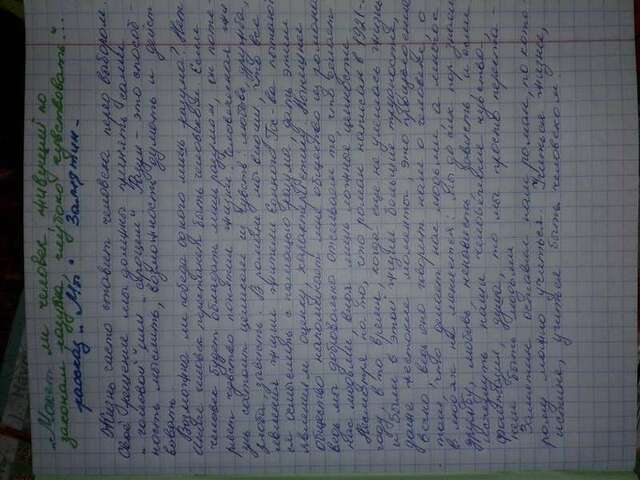 „Может ли человек, живущий по
законам разума, глубоко чувствовать?"..
рассказ „Мы" Замятин-
Жизнь часто ставит человека перед выбором.
Своё решение мы должны принять сами
„головой" или „сердцем" Разум - это способ-
ность мыслить, возможность думать и дейст
вовать.
Возможна ли победа одного лишь разума? Нет
Иначе человек перестанет быть человеком. Если
человек будет обладать лишь разумом, он поте-
ряет чувство понятия жизни. Человеческая жи
знь состоит целиком из чувств: любовь, дружба,
злоба, зависть. В романе мы видим, что все
явления жизни жители Единого Гос-ва пытают
ся осмыслить с помощью разума, дать этим
явлениям оценку, характеристику. Нынешнее
общество напоминает мне общество из романа
ведь мы добровольно отсеиваем то, что делает
нас людьми, видя лишь ложные ценности.
Несмотря на то, что роман написан в 1921-
году, в то время, когда еще не улеглась жизнь
и были в этой жизни большие трудности,
даже жестокие моменты, это произведение
вечно, ведь оно говорит нам о человеке, о
том, что делает нас людьми, а многое
в людях не меняется: мы до сих пор знаем
дружбу, любовь, ненависть, зависть, и если
исчезнут наши человеческие чувства,
фантазия, душа, то мы просто переста-
нем быть людьми
Замятин оставил нам роман, по кото
рому можно учиться. Учиться жизни,
истине, учиться быть человеком.